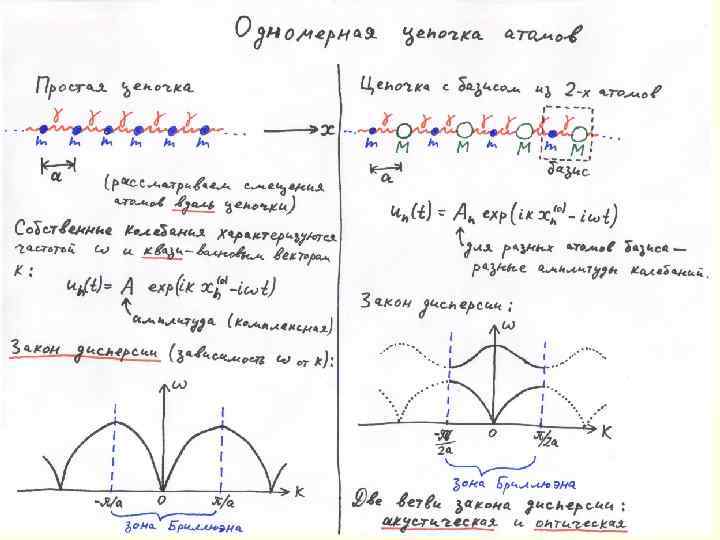 Одномерная цепочка атомов
Простая цепочка
γ γ γ γ γ
x
m m m m m m
a
(рассматриваем смещения
атомов вдоль цепочки)
Собственные колебания характеризуются
частотой ω и квази-волновым вектором
k:
uₙ(t) = A exp(ik xₙ⁽⁰⁾ - iωt)
амплитуда (комплексная)
Закон дисперсии (зависимость ω от k):
ω
-π/a 0 π/a K
зона Бриллюэна
Цепочка с базисом из 2-х атомов
γ γ γ γ γ γ γ
m M m M m M m M
a
базис
uₙ(t) = Aₙ exp(ik xₙ⁽⁰⁾ - iωt)
для разных атомов базиса —
разные амплитуды колебаний.
Закон дисперсии:
ω
-π/2a 0 π/2a K
зона Бриллюэна
Две ветви закона дисперсии:
акустическая и оптическая